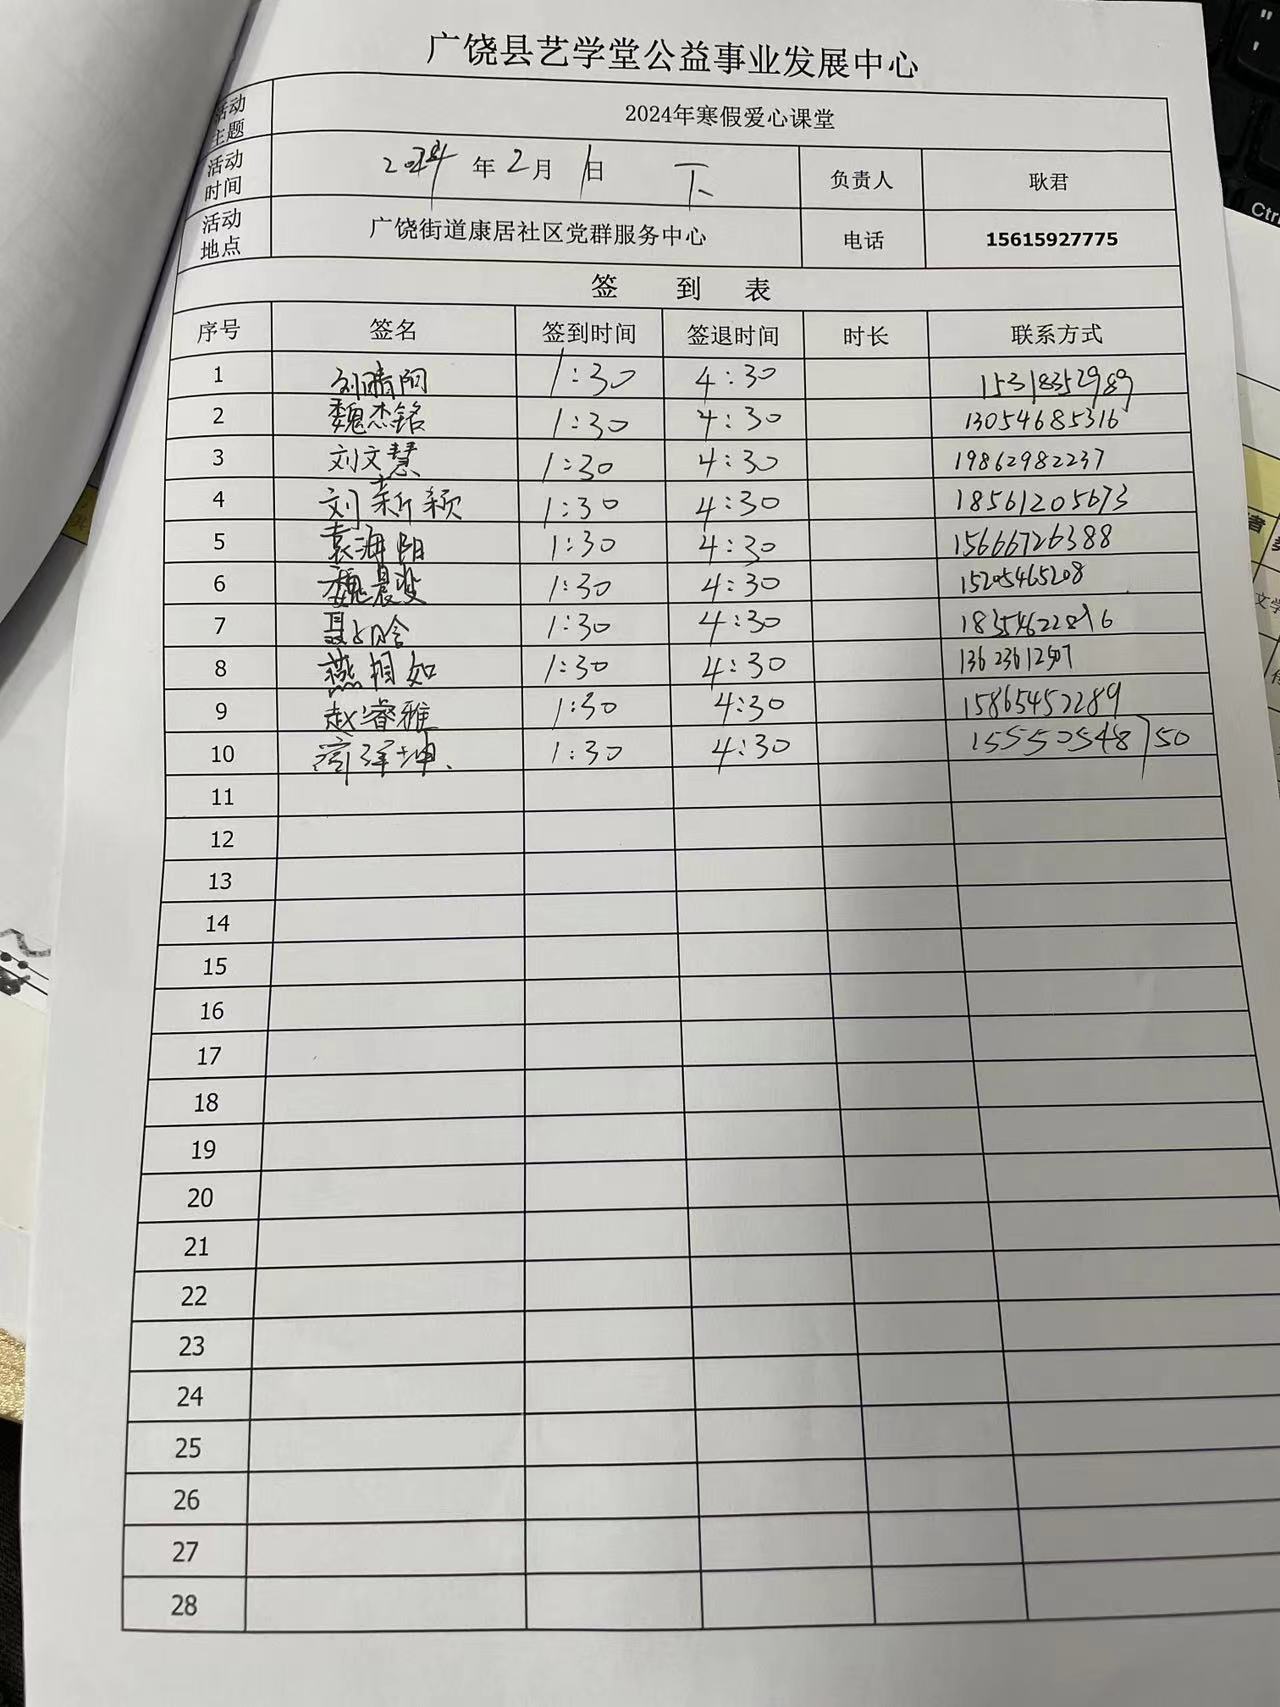 广饶县艺学堂公益事业发展中心
活动主题 2024年寒假爱心课堂
活动时间 2024年2月1日 下 负责人 耿君
活动地点 广饶街道康居社区党群服务中心 电话 15615927775
签 到 表
序号 签名 签到时间 签退时间 时长 联系方式
1 刘晴阳 1:30 4:30 15318352989
2 魏杰铭 1:30 4:30 13054685316
3 刘文慧 1:30 4:30 19862982237
4 刘新颖 1:30 4:30 18561205673
5 袁海阳 1:30 4:30 15666726388
6 魏晨 1:30 4:30 15205465208
7 1:30 4:30
8 燕相如 1:30 4:30
9 赵睿雅 1:30 4:30 15865452289
10 1:30 4:30 15550548750
11
12
13
14
15
16
17
18
19
20
21
22
23
24
25
26
27
28
Ctrl